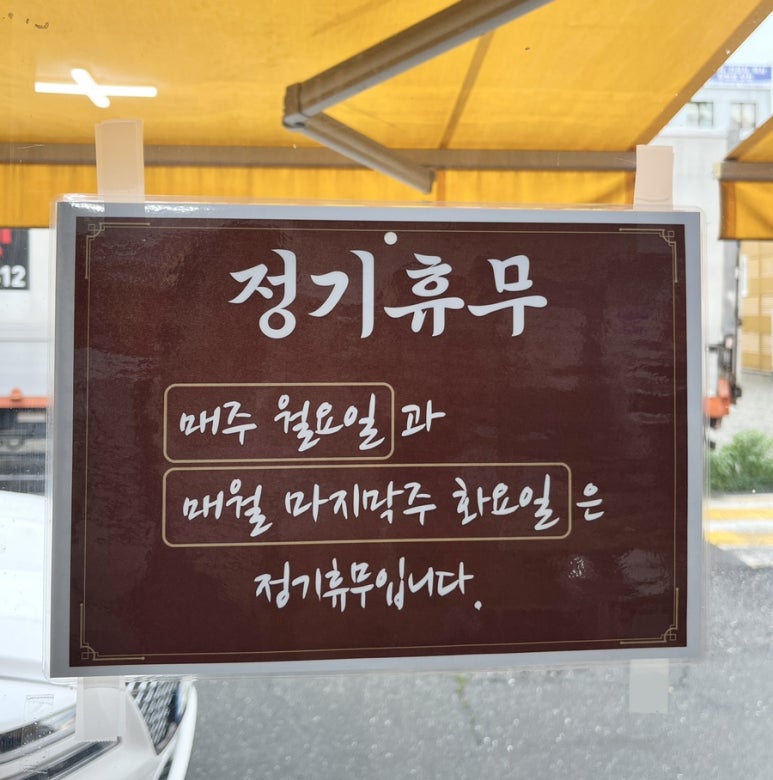 정기휴무
매주 월요일 과
매월 마지막주 화요일 은
정기휴무입니다.
12